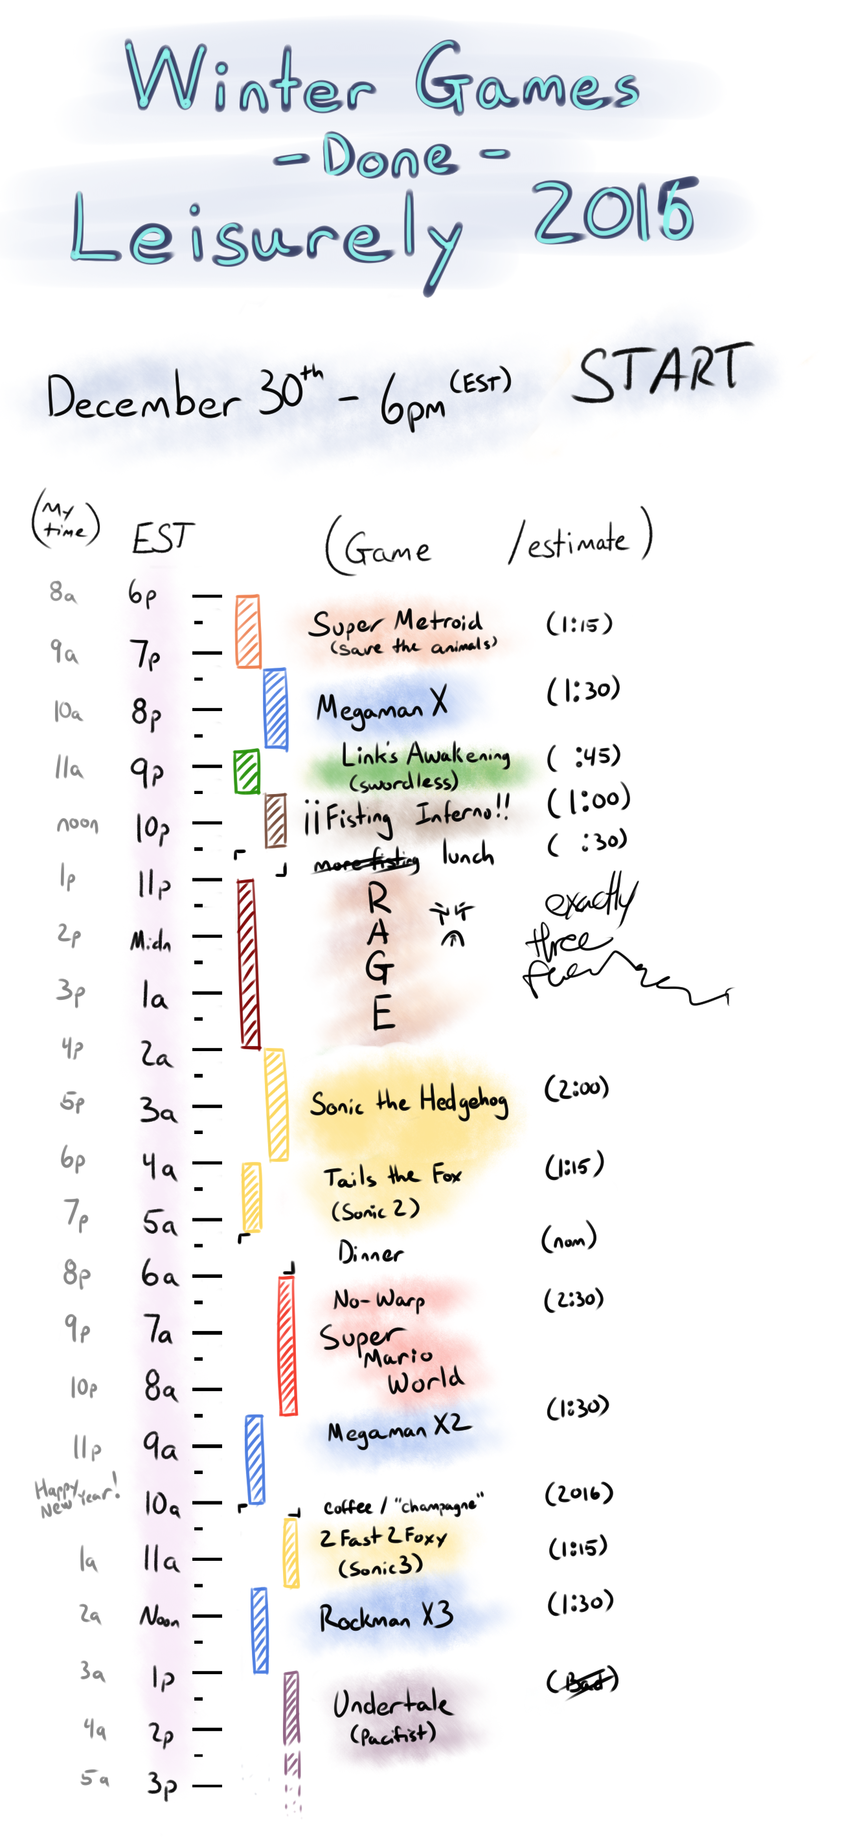 Winter Games
- Done -
Leisurely 2016
December 30th - 6pm (EST) START
(My time) EST (Game /estimate)
8a 6p
Super Metroid (1:15)
(save the animals)
9a 7p
10a 8p Megaman X (1:30)
Link's Awakening ( :45)
11a 9p
(swordless)
noon 10p ¡¡Fisting Inferno!! (1:00)
more fisting lunch ( :30)
1p 11p
RAGE exactly
2p Midn three
3p 1a
4p 2a
5p 3a Sonic the Hedgehog (2:00)
6p 4a Tails the Fox (1:15)
7p 5a (Sonic 2)
Dinner (nom)
8p 6a
No-Warp (2:30)
9p 7a Super
Mario
10p 8a World
Megaman X2 (1:30)
11p 9a
Happy New Year! 10a coffee / "champagne" (2016)
2 Fast 2 Foxy (1:15)
1a 11a (Sonic 3)
2a Noon Rockman X3 (1:30)
3a 1p (Bad)
Undertale
4a 2p (Pacifist)
5a 3p